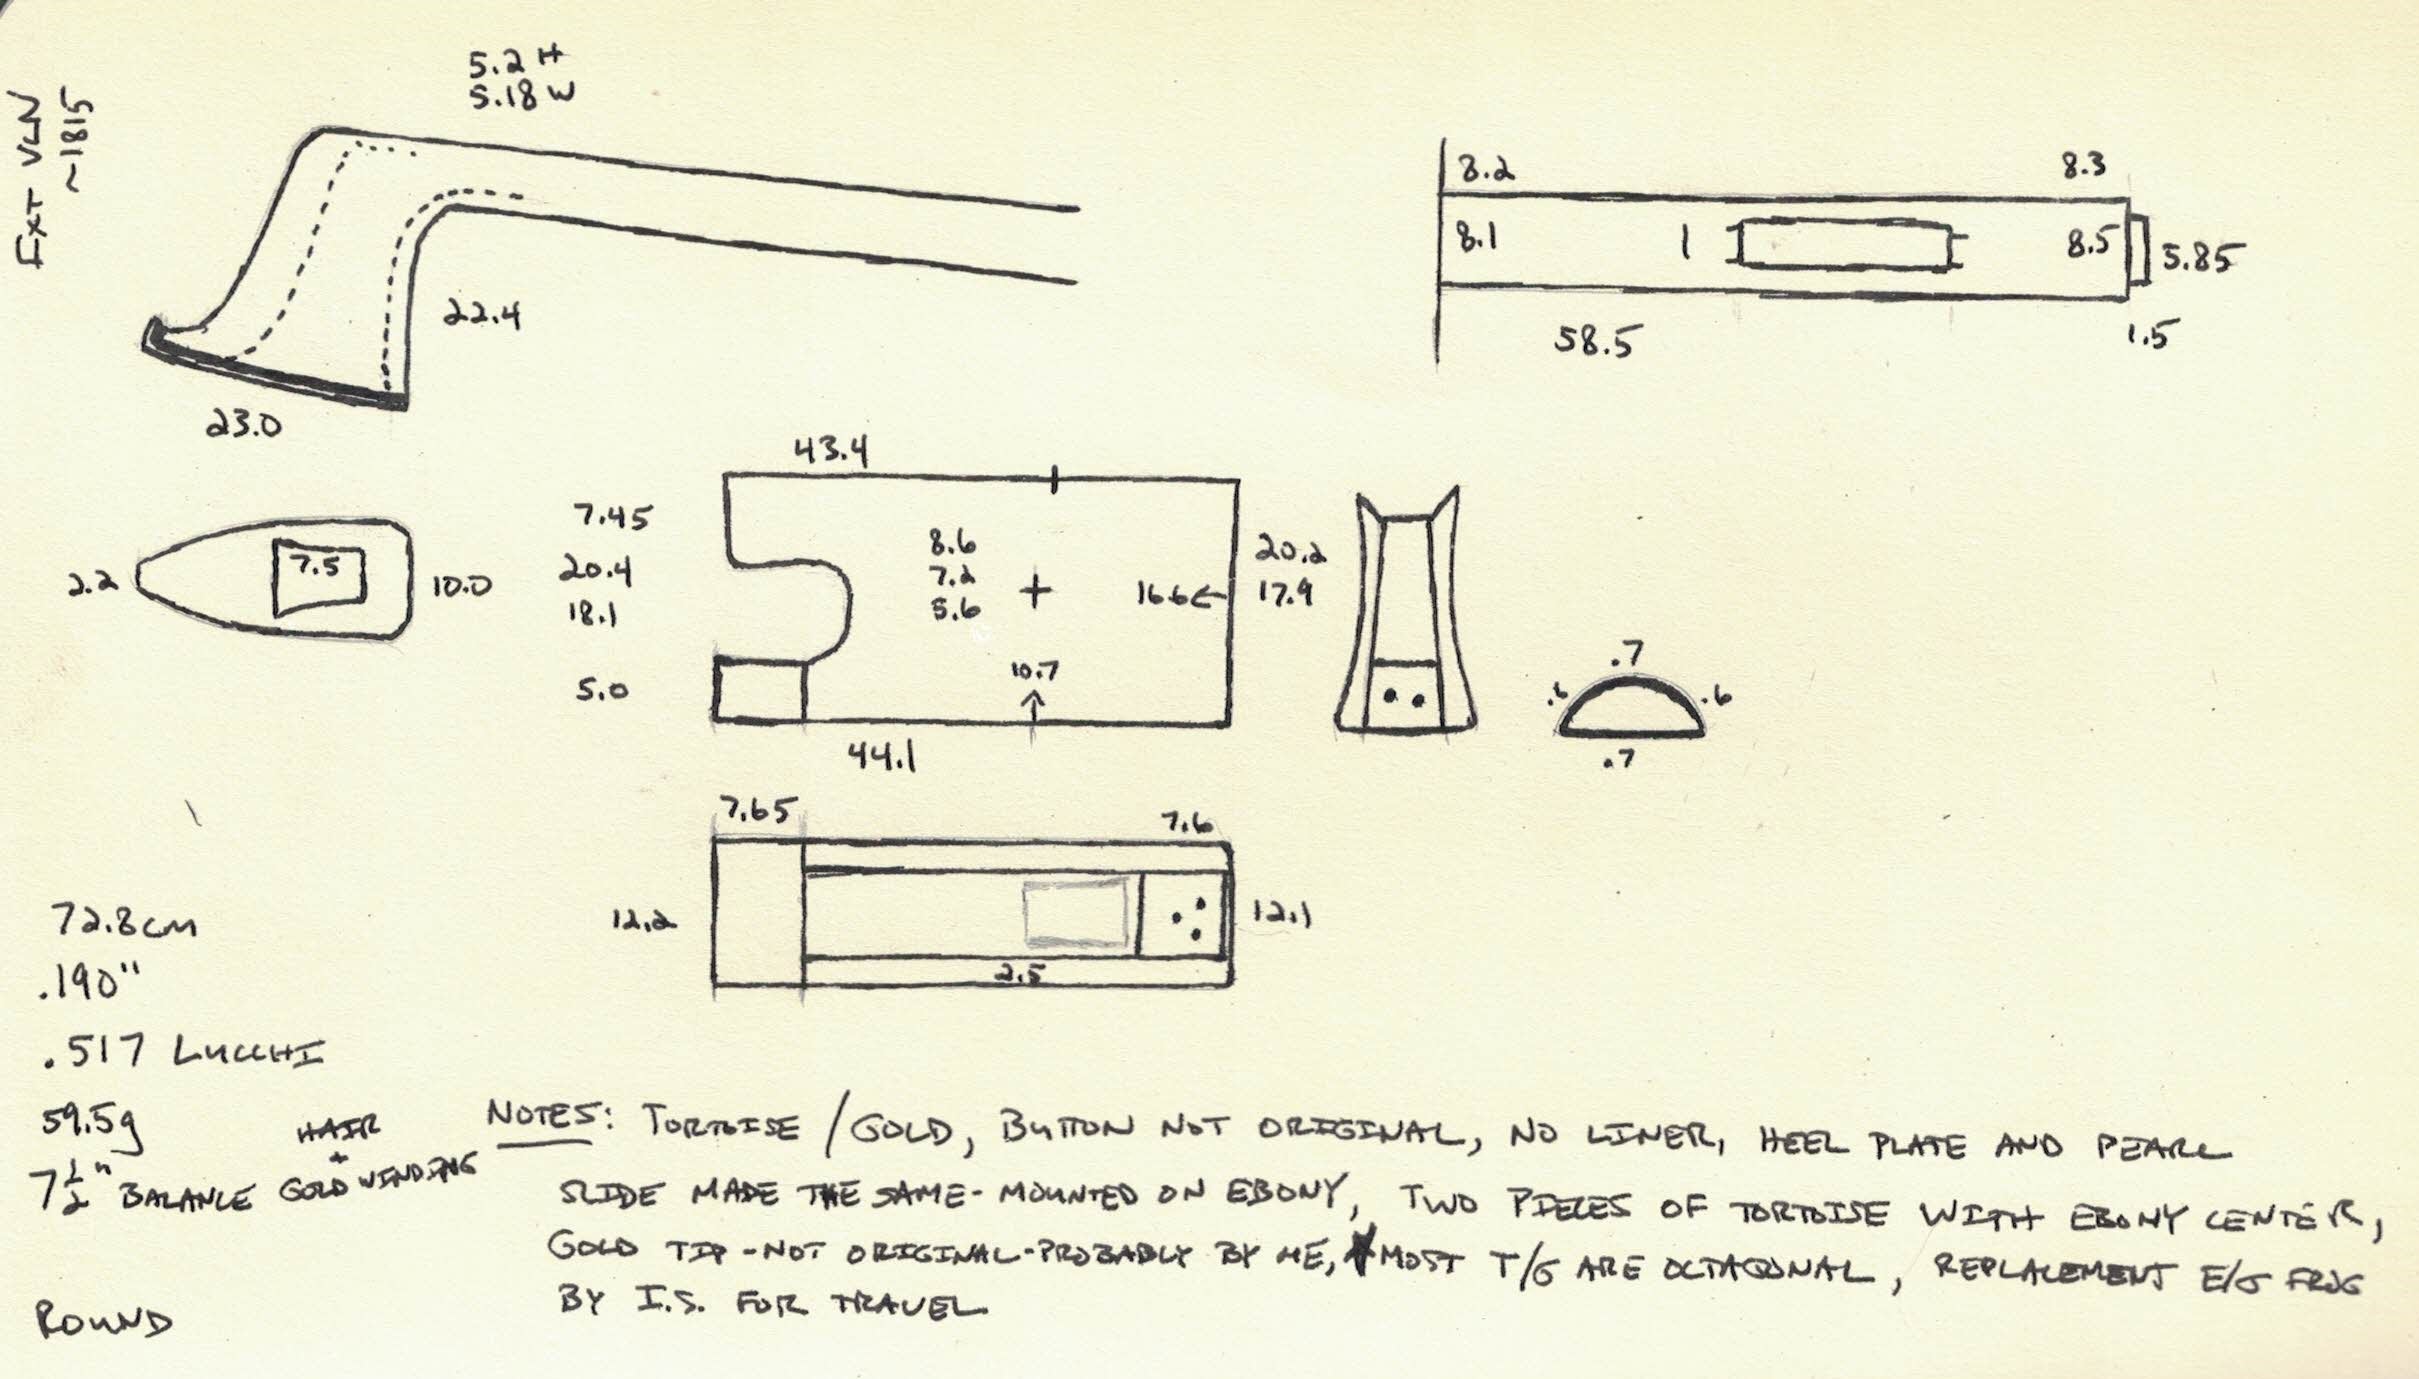 FXT VLN
~1815
5.2 H
5.18 W
22.4
23.0
8.2
8.3
8.1
1
8.5
5.85
58.5
1.5
2.2
7.5
10.0
43.4
7.45
20.4
18.1
5.0
8.6
7.2
5.6
16.6
20.2
17.9
10.7
44.1
.7
.6
.6
.7
7.65
7.6
12.2
12.1
2.5
72.8cm
.190"
.517 LUCCHI
59.5g
7 1/2" BALANCE
HAIR
+
GOLD WINDING
ROUND
NOTES: TORTOISE / GOLD, BUTTON NOT ORIGINAL, NO LINER, HEEL PLATE AND PEARL
SLIDE MADE THE SAME - MOUNTED ON EBONY, TWO PIECES OF TORTOISE WITH EBONY CENTER,
GOLD TIP - NOT ORIGINAL - PROBABLY BY ME, MOST T/G ARE OCTAGONAL, REPLACEMENT E/G FROG
BY I.S. FOR TRAVEL